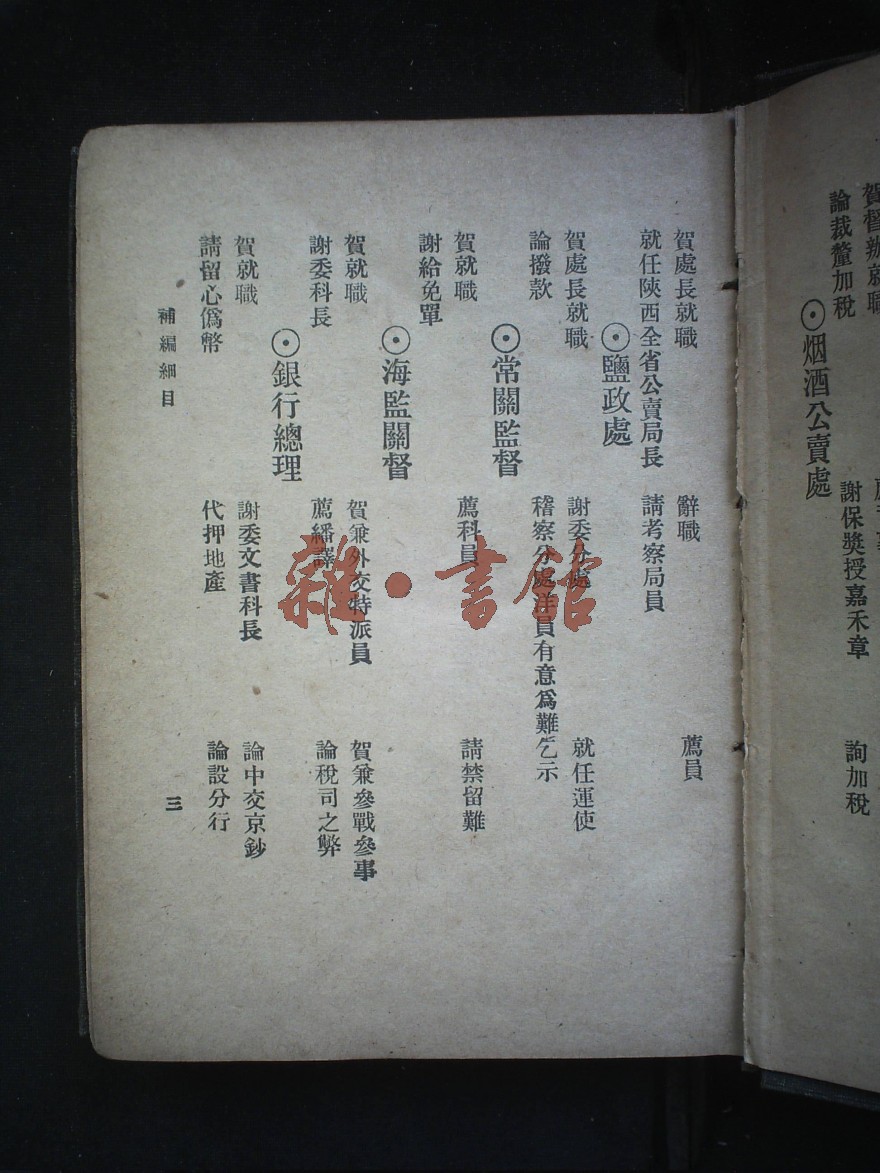 賀督辦就職
論裁釐加稅　謝保獎授嘉禾章　詢加稅
⊙烟酒公賣處
賀處長就職　辭職　薦員
就任陝西全省公賣局長　請考察局員
⊙鹽政處
賀處長就職　謝委分處　就任運使
論撥款　稽察分處洋員有意爲難乞示
⊙常關監督
賀就職　薦科員　請禁留難
謝給免單
⊙海監關督
賀就職　賀兼外交特派員　賀兼參戰參事
謝委科長　薦繙譯　論稅司之弊
⊙銀行總理
賀就職　謝委文書科長　論中交京鈔
請留心僞幣　代押地產　論設分行
補編細目　三
雜·書館